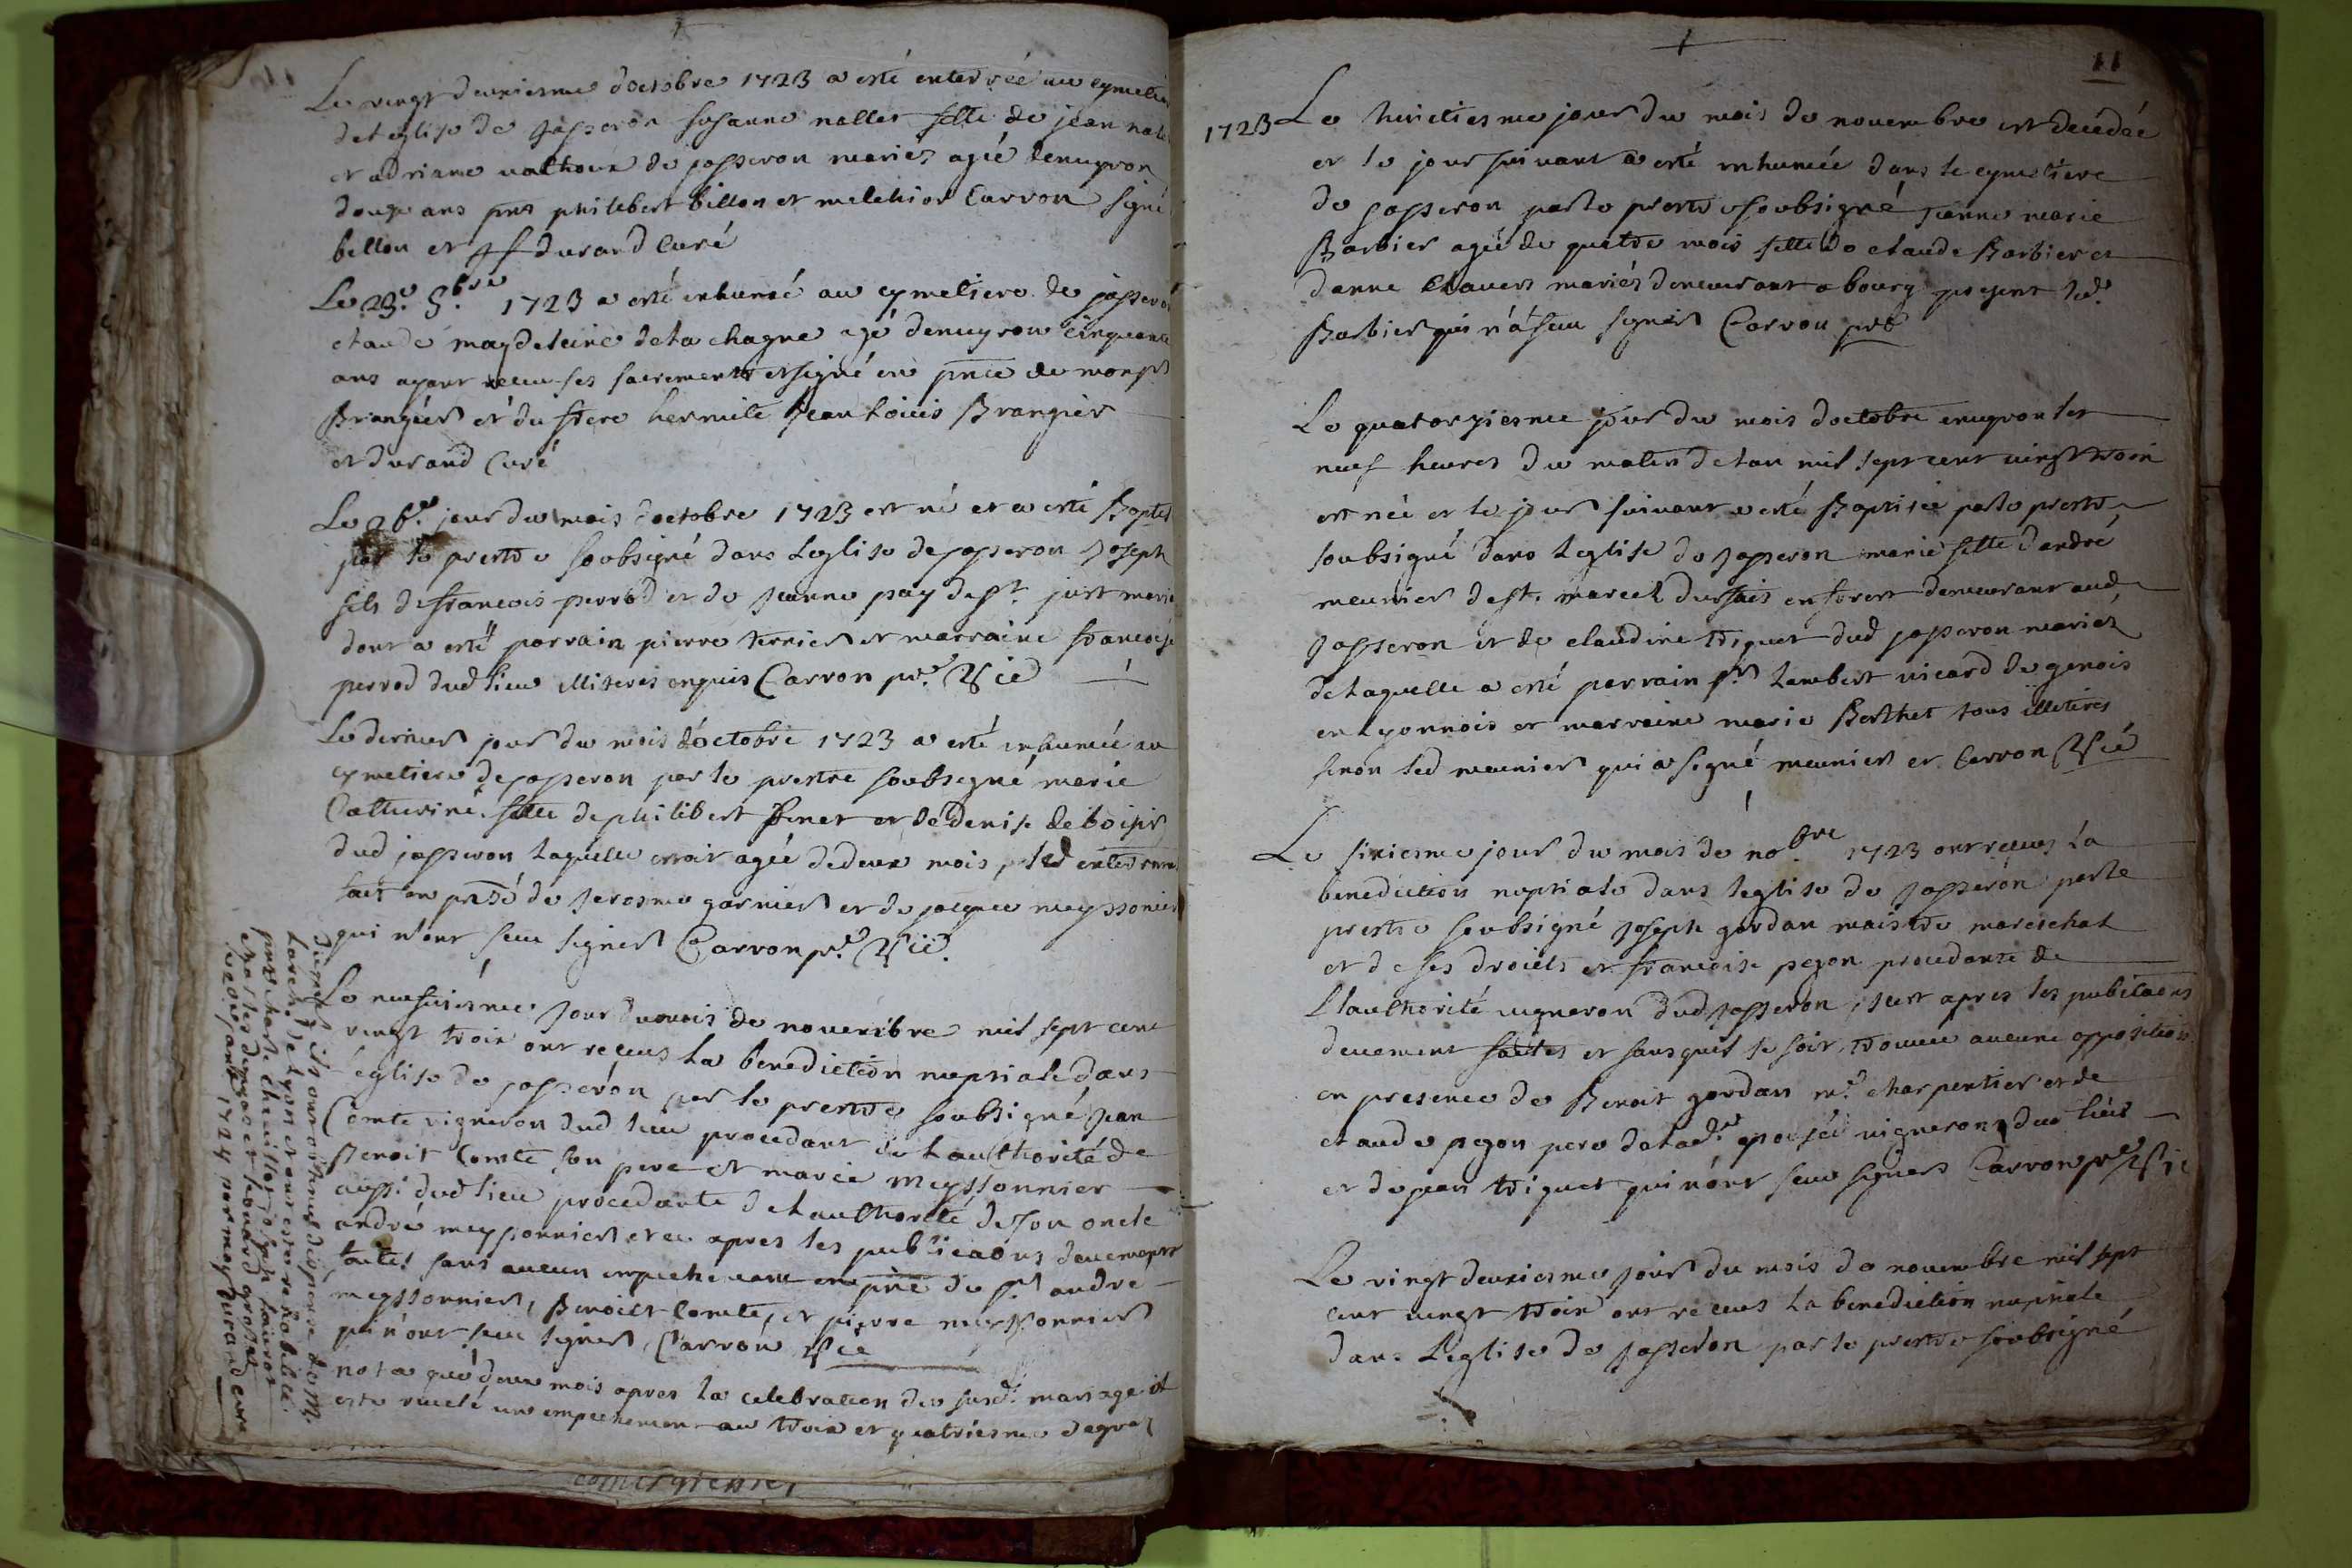 Le vingt deuxiesme doctobre 1723 a esté enterrée au cymetiere
de leglise de Jasseron susanne nallet fille de jean nalet
et adriane vathoux de jasseron mariés agée denuyron
douze ans pnts philibert billon et melchior Carron signé
billon et durand Curé
Le 23e 8bre 1723 a esté inhumé au cymetiere de jasseron
claude magdeleine de la chagne agé denuyron cinquante
ans ayant receu ses sacrements et signé en pnce de monsr
Brangier et du frere hermite Jean Louis Brangier
et durand Curé
Le 26e jour du mois doctobre 1723 est né et a esté Baptisé
par le prestre soubsigné dans leglise de Jasseron Joseph
fils de francois perrod et de Jeanne pay de st just mariés
dont a esté parrain pierre terrier et marraine francoise
perrod dud lieu illiterés enquis Carron pre Vic
Le dernier jour du mois doctobre 1723 a esté inhumée au
cymetiere de jasseron par le prestre soubsigné marie
Catherine fille de philibert et de denise
dud jasseron laquelle estoit agée de deux mois, led enterrem
fait en pnce de Jerosme garnier et de jacque meyssonier
qui n'ont sceu signer Carron pre Vic.
Le neufuiesme Jour du mois de nouembre mil sept cent
vingt trois ont receus la benediction nuptiale dans
leglise de jasseron par le prestre soubsigné Jean
Comte vigneron dud lieu procedant de lauthorité de
Benoit Comte son pere et marie Meyssonnier
aussi dud lieu procedante de lauthorité de son oncle
andré meyssonnier et ce apres les publicaons deuement
faites sans aucun empechement en pnce de sr andre
meyssonnier, Benoict Comte, et pierre meyssonnier
qui n'ont sceu signer, Carron Vic
nota que deux mois apres la celebration du susd. mariage il
esté reuelé un empechement au trois et quatriesme degrez
ils ont obtenus dispense de M.
Larch. de Lyon et ont esté rehabilité
pnts
et
le 20e janv 1724 par moy durand curé
11
1723 Le huictiesme jour du mois de nouembre est decedée
et le jour suiuant a esté inhumée dans le cymetiere
de Jasseron par le prestre soubsigné Jeanne marie
Barbier agée de quatre mois fille de claude Barbier et
danne Clauers mariés demeurant a bourg present led.
Barbier qui n'a sceu signer Carron pre
Le quatorziesme jour du mois doctobre enuyron les
neuf heures du matin de lan mil sept cent vingt trois
est née et le jour suiuant a esté Baptisée par le prestre
soubsigné dans leglise de Jasseron marie fille dandré
meunier de st. marcel en forest demeurant aud
Jasseron et de claudine triquet dud jasseron mariés
de laquelle a esté parrain sr Lambert vicard de genois
en Lyonnois et marraine marie Berthet tous illiterés
sinon led meunier qui a signé meunier et Carron Vic
Le sixiesme jour du mois de nobre 1723 ont receus la
benediction nuptiale dans leglise de Jasseron par le
prestre soubsigné Joseph gordan maistre mareschal
et de ses droicts et francoise pegon procedante de
Lauthorité vigneron dud Jasseron, Et apres les publicaons
deuement faites et sans quil se soit trouuée aucune opposition
en presence de Benoit gordan mr charpentier et de
claude pegon pere de lade epousée vigneron dud lieu
et de jean triquet qui n'ont sceu signer Carron pre Vic
Le vingt deuxiesme jour du mois de nouembre mil sept
cent vingt trois ont receus la benediction nuptiale
dans Leglise de Jasseron par le prestre soubsigné